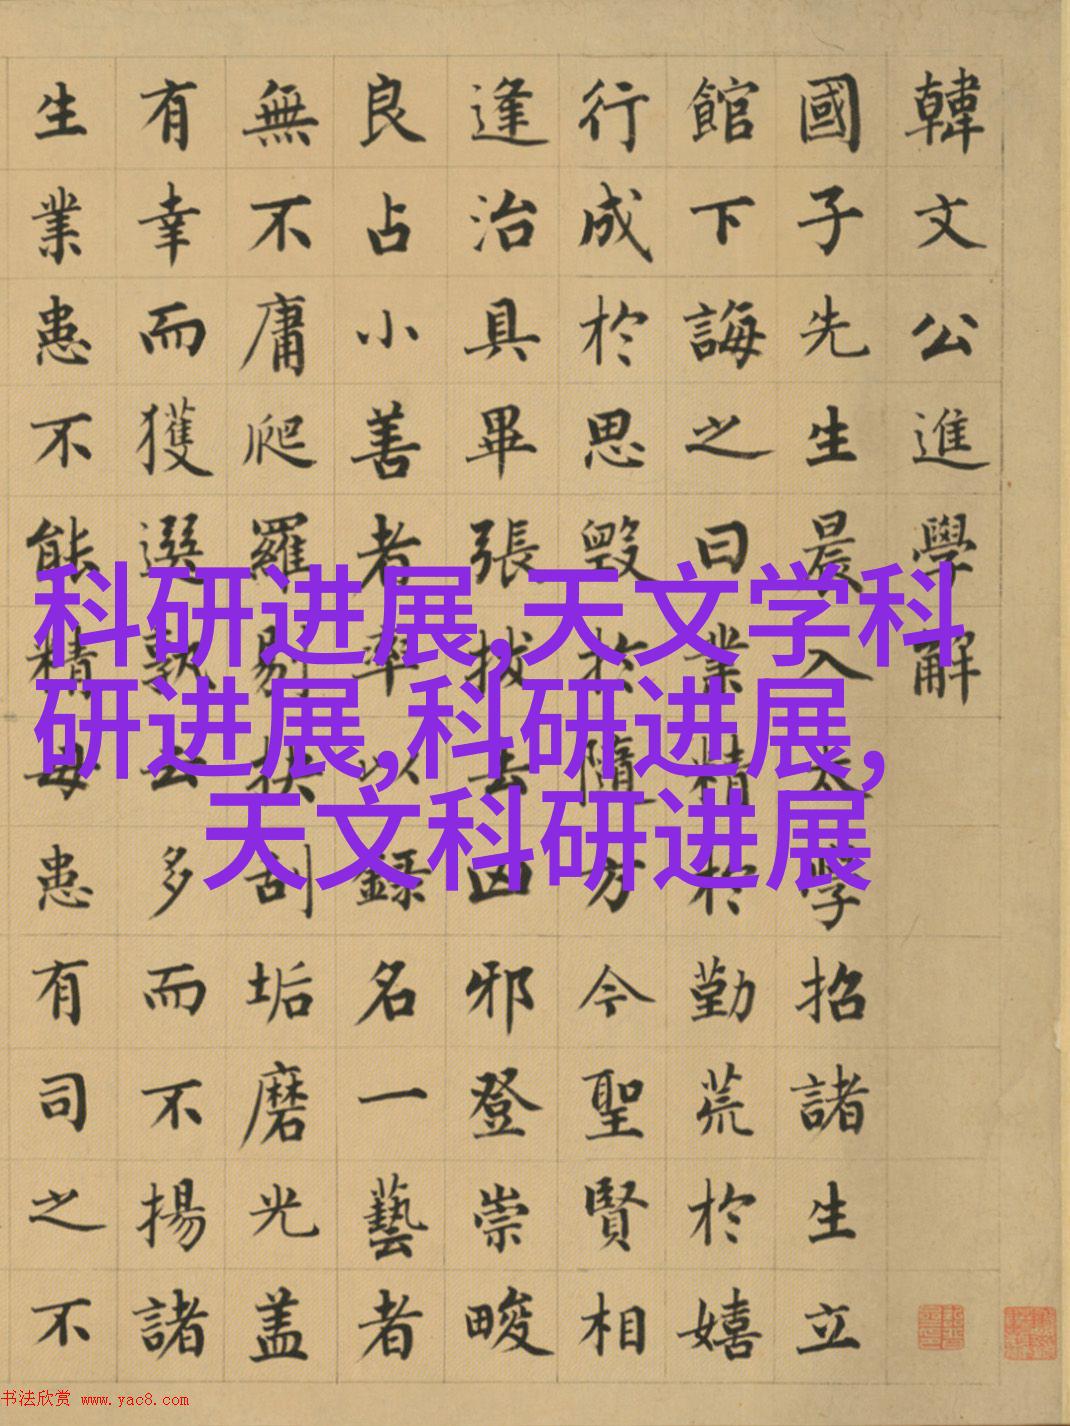 韓文公進學解
國子先生晨入太學招諸生立
館下誨之曰業精於勤荒於嬉
行成於思毀於隨方今聖賢相
逢治具畢張拔去凶邪登崇畯
良占小善者率以錄名一藝者
無不庸爬羅剔抉刮垢磨光盖
有幸而獲選孰云多而不揚諸
生業患不能精毋患有司之不
科研进展,天文学科
研进展,科研进展,
天文科研进展
书法欣赏 www.yac8.com